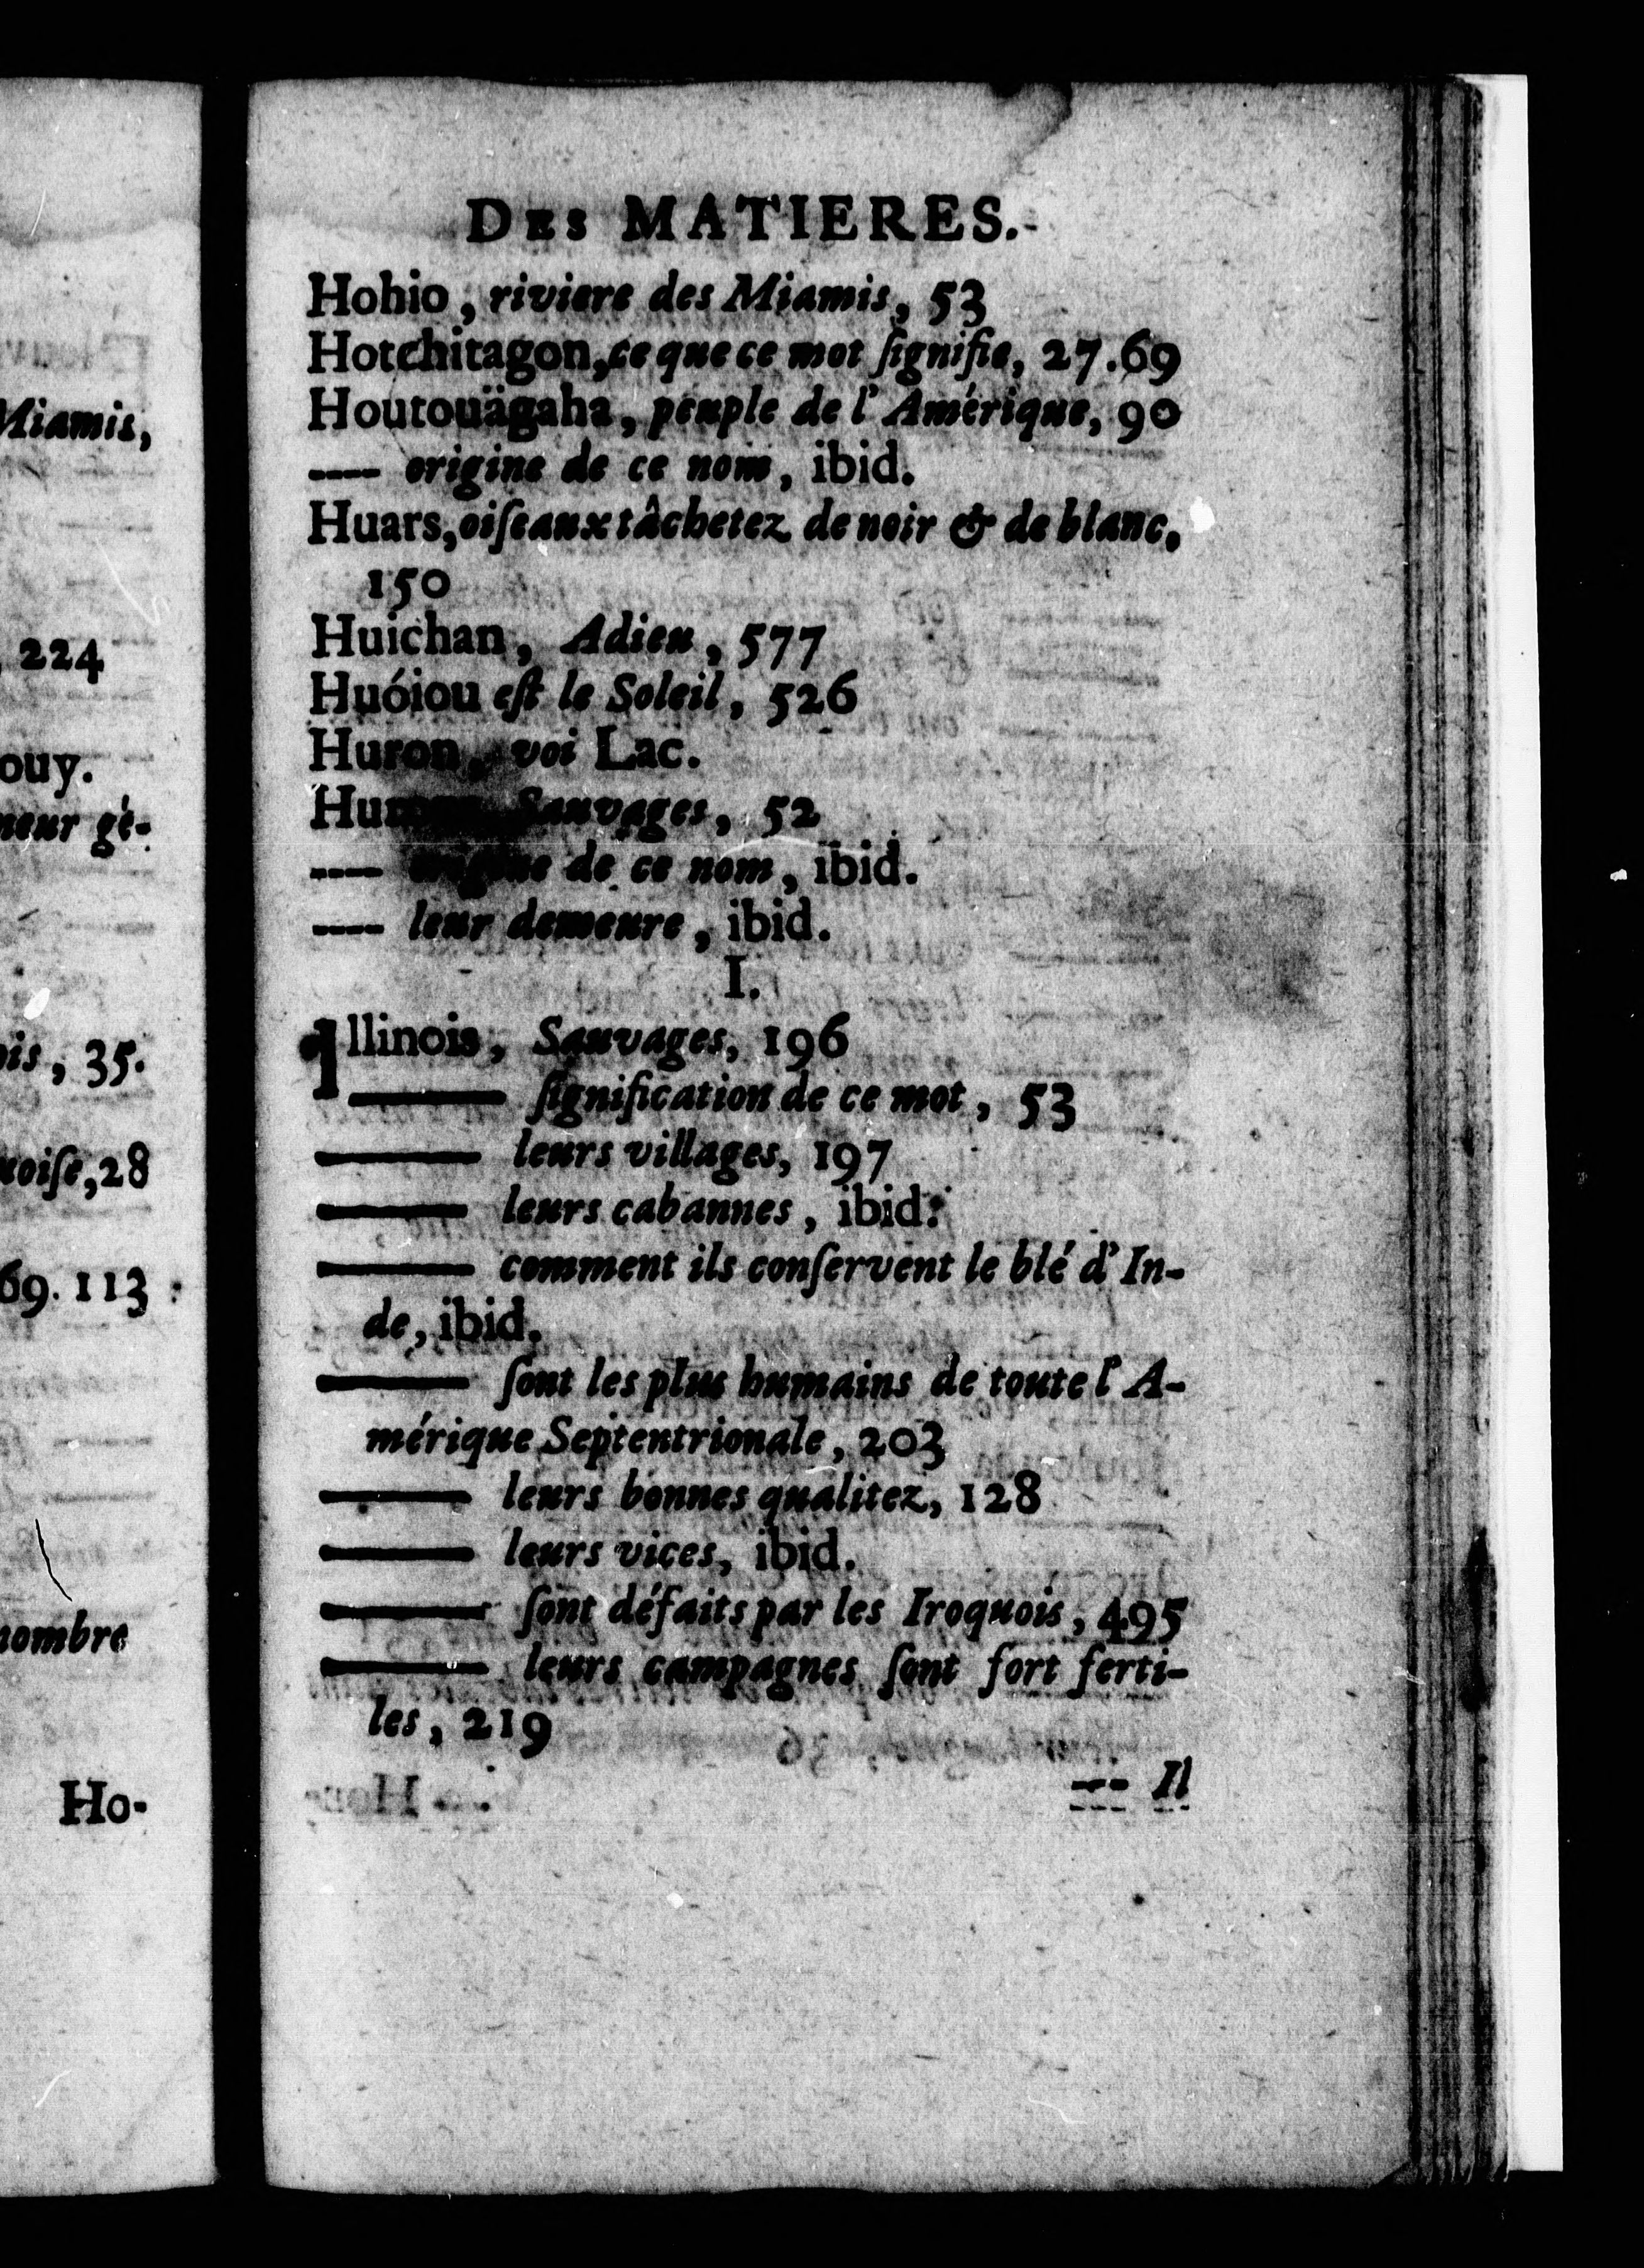 Miamis,
, 224
ouy.
neur gé-
ois, 35.
uoiſe, 28
69. 113
nombre
Ho-
DES MATIERES.
Hohio, riviere des Miamis, 53
Hotchitagon, ce que ce mot ſignifie, 27.69
Houtouägaha, peuple de l'Amérique, 90
---- origine de ce nom, ibid.
Huars, oiſeaux tâchetez de noir & de blanc,
150
Huichan, Adieu, 577
Huóiou eſt le Soleil, 526
Huron, voi Lac.
Sauvages, 52
---- origine de ce nom, ibid.
---- leur demeure, ibid.
I.
Illinois, Sauvages, 196
—— ſignification de ce mot, 53
—— leurs villages, 197
—— leurs cabannes, ibid.
—— comment ils conſervent le blé d'In-
de, ibid.
—— ſont les plus humains de toute l'A-
mérique Septentrionale, 203
—— leurs bonnes qualitez, 128
—— leurs vices, ibid.
—— ſont défaits par les Iroquois, 495
—— leurs campagnes ſont fort ferti-
les, 219
--- Il